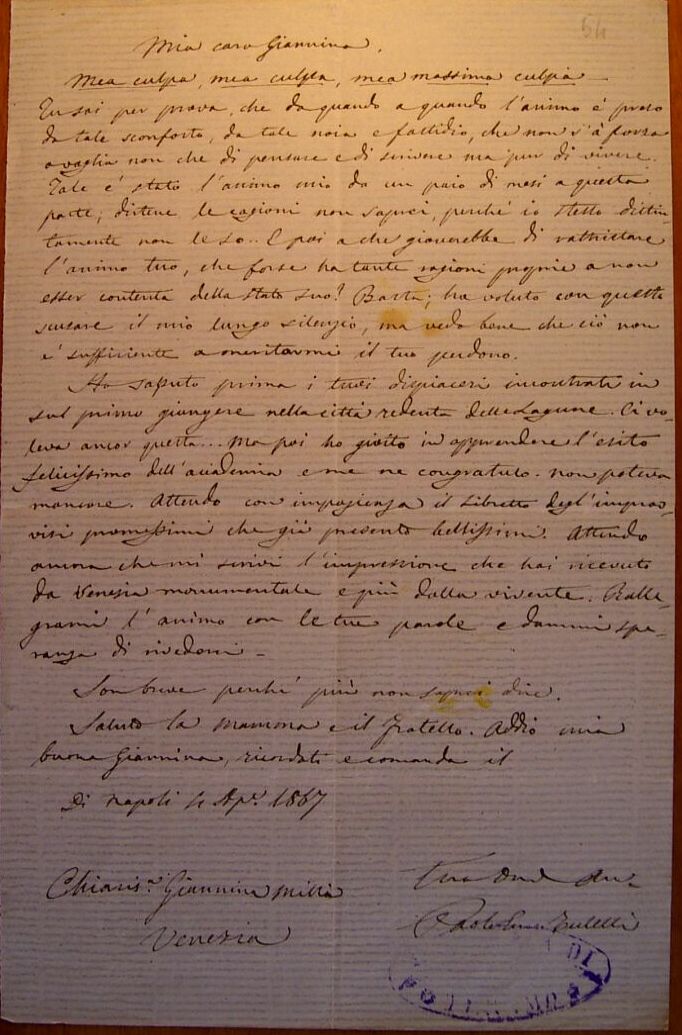 54
Mia cara Giannina,
Mea culpa, mea culpa, mea massima culpa —
Tu sai per prova, che da quando a quando l'animo è preso
da tale sconforto, da tale noia e fastidio, che non v'à forza
a vaglia non che di pensare e di scrivere ma pur di vivere.
Tale è stato l'animo mio da un paio di mesi a questa
parte; dirtene le cagioni non saprei, perchè io stesso distin-
tamente non le so.. E poi a che gioverebbe di rattristare
l'animo tuo, che forse ha tante ragioni proprie a non
esser contenta dello stato suo? Basta; ho voluto con questo
scusare il mio lungo silenzio, ma vedo bene che ciò non
è sufficiente a meritarmi il tuo perdono.
Ho saputo prima i tuoi dispiaceri incontrati in
sul primo giungere nella città redenta delle Lagune. Ci vo-
leva ancor questa... Ma poi ho gioito in apprendere l'esito
felicissimo dell'accademia e me ne congratulo. non poteva
mancare. Attendo con impazienza il Libretto degl'improv-
visi promessimi che già presento bellissimi. Attendo
ancora che mi scrivi l'impressione che hai ricevuto
da Venezia monumentale e più dalla vivente. Ralle-
grami l'animo con le tue parole e dammi spe-
ranza di rivederci —
Son breve perchè più non saprei dire.
Saluto la Mamma e il Fratello. Addio mia
buona Giannina, ricordati e comanda il
Di Napoli 4 Apr. 1867
Chiaris.ª Giannina Milli
Venezia
Paolo Em.
DI